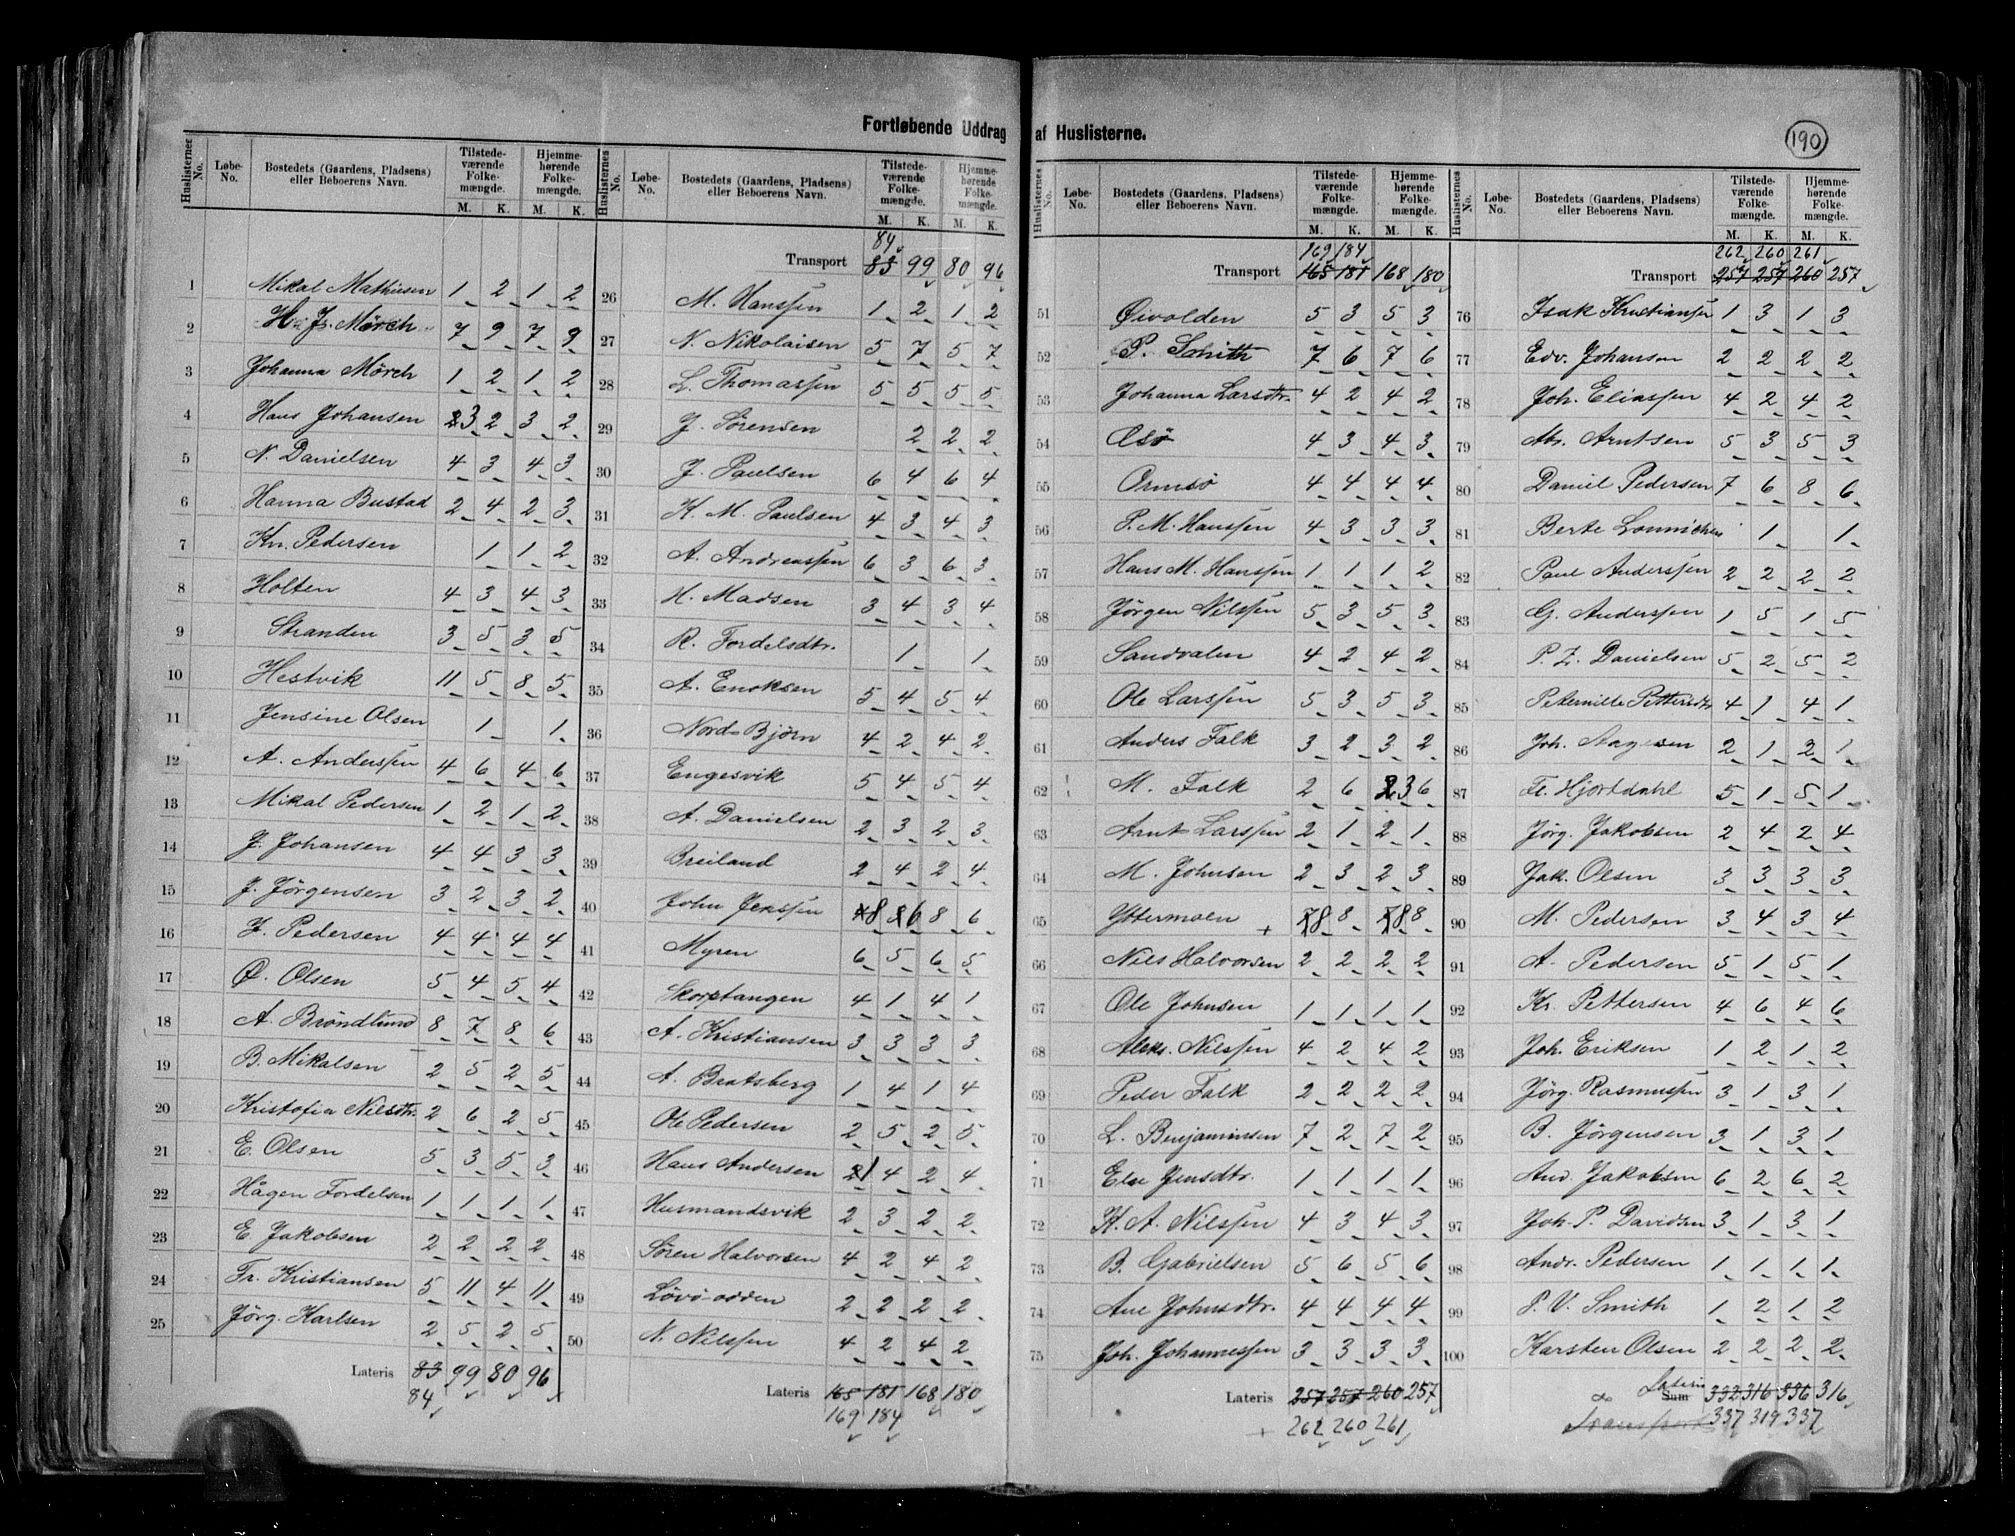 Fortløbende Uddrag af Huslisterne.
190
Huslisternes No. Løbe-No. Bostedets (Gaardens, Pladsens) eller Beboerens Navn. Tilstedeværende Folkemængde. M. K. Hjemmehørende Folkemængde. M. K.
1 Mikal Mathiesen 1 2 1 2
2 H. Js. Mörch 7 9 7 9
3 Johanna Mörch 1 2 1 2
4 Hans Johansen 3 2 3 2
5 N. Danielsen 4 3 4 3
6 Hanna Bustad 2 4 2 3
7 Kn. Pedersen 1 1 2
8 Holten 4 3 4 3
9 Stranden 3 5 3 5
10 Hestvik 11 5 8 5
11 Jensine Olsen 1 1
12 A. Anderssen 4 6 4 6
13 Mikal Pedersen 1 2 1 2
14 J. Johansen 4 4 3 3
15 J. Jörgensen 3 2 3 2
16 J. Pedersen 4 4 4 4
17 O. Olsen 5 4 5 4
18 A. Bröndlund 8 7 8 6
19 B. Mikalsen 2 5 2 5
20 Kristofia Nilsdtr. 2 6 2 5
21 E. Olsen 5 3 5 3
22 Hågen Fordelsen 1 1 1 1
23 E. Jakobsen 2 2 2 2
24 Fr. Kristiansen 5 11 4 11
25 Jörg. Karlsen 2 5 2 5
Lateris 83 99 80 96
84
Huslisternes No. Løbe-No. Bostedets (Gaardens, Pladsens) eller Beboerens Navn. Tilstedeværende Folkemængde. M. K. Hjemmehørende Folkemængde. M. K.
84
Transport 83 99 80 96
26 M. Hanssen 1 2 1 2
27 N. Nikolaisen 5 7 5 7
28 L. Thomassen 5 5 5 5
29 J. Sörensen 2 2 2
30 J. Paulsen 6 4 6 4
31 K. M. Paulsen 4 3 4 3
32 A. Andreassen 6 3 6 3
33 H. Madsen 3 4 3 4
34 R. Fordelsdtr. 1 1
35 A. Enoksen 5 4 5 4
36 Nord-Björn 4 2 4 2
37 Engesvik 5 4 5 4
38 A. Danielsen 2 3 2 3
39 Breiland 2 4 2 4
40 John Jenssen 8 6 8 6
41 Myren 6 5 6 5
42 Skorptangen 4 1 4 1
43 A. Kristiansen 3 3 3 3
44 A. Bratsberg 1 4 1 4
45 Ole Pedersen 2 5 2 5
46 Hans Andersen 1 4 2 4
47 Husmandsvik 2 3 2 2
48 Sören Halvorsen 4 2 4 2
49 Lövö-odden 2 2 2 2
50 N. Nilssen 4 2 4 2
Lateris 165 181 168 180
169 184
Huslisternes No. Løbe-No. Bostedets (Gaardens, Pladsens) eller Beboerens Navn. Tilstedeværende Folkemængde. M. K. Hjemmehørende Folkemængde. M. K.
169 184
Transport 165 181 168 180
51 Öivolden 5 3 5 3
52 P. Smith 7 6 7 6
53 Johanna Larsdtr. 4 2 4 2
54 Osö 4 3 4 3
55 Ormsö 4 4 4 4
56 P. M. Hanssen 4 3 3 3
57 Hans M. Hanssen 1 1 1 2
58 Jörgen Nilssen 5 3 5 3
59 Sandvalen 4 2 4 2
60 Ole Larssen 5 3 5 3
61 Anders Falk 3 2 3 2
62 M. Falk 2 6 3 6
63 Arnt Larssen 2 1 2 1
64 M. Johnsen 2 3 2 3
65 Yttermoen + 8 8 8 8
66 Nils Halvorsen 2 2 2 2
67 Ole Johnsen 1 1 1 1
68 Aleks. Nilssen 4 2 4 2
69 Peder Falk 2 2 2 2
70 L. Benjaminsen 7 2 7 2
71 Else Jensdtr. 1 1 1 1
72 K. A. Nilssen 4 3 4 3
73 B. Gabrielsen 5 6 5 6
74 Ane Johnsdtr. 4 4 4 4
75 Joh. Johannessen 3 3 3 3
Lateris 257 257 260 257
+ 262 260 261
Huslisternes No. Løbe-No. Bostedets (Gaardens, Pladsens) eller Beboerens Navn. Tilstedeværende Folkemængde. M. K. Hjemmehørende Folkemængde. M. K.
262 260 261
Transport 257 257 260 257
76 Isak Kristiansen 1 3 1 3
77 Edv. Johansen 2 2 2 2
78 Joh. Eliassen 4 2 4 2
79 Arntsen 5 3 5 3
80 Daniel Pedersen 7 6 8 6
81 Berte 1 1
82 Paul Anderssen 2 2 2 2
83 G. Anderssen 1 5 1 5
84 P. Z. Danielsen 5 2 5 2
85 Peternille Pettersdtr 4 1 4 1
86 Joh. Aagesen 2 1 2 1
87 Fl. Hjortdahl 5 1 5 1
88 Jörg. Jakobsen 2 4 2 4
89 Jak. Olsen 3 3 3 3
90 M. Pedersen 3 4 3 4
91 A. Pedersen 5 1 5 1
92 Kr. Pettersen 4 6 4 6
93 Joh. Eriksen 1 2 1 2
94 Jörg. Rasmussen 3 1 3 1
95 B. Jörgensen 3 1 3 1
96 And. Jakobsen 6 2 6 2
97 Joh. P. Davidsen 3 1 3 1
98 Andr. Pedersen 1 1 1 1
99 P. V. Smith 1 2 1 2
100 Karsten Olsen 2 2 2 2
Lateris
Sum 332 316 336 316
Transport 337 319 337